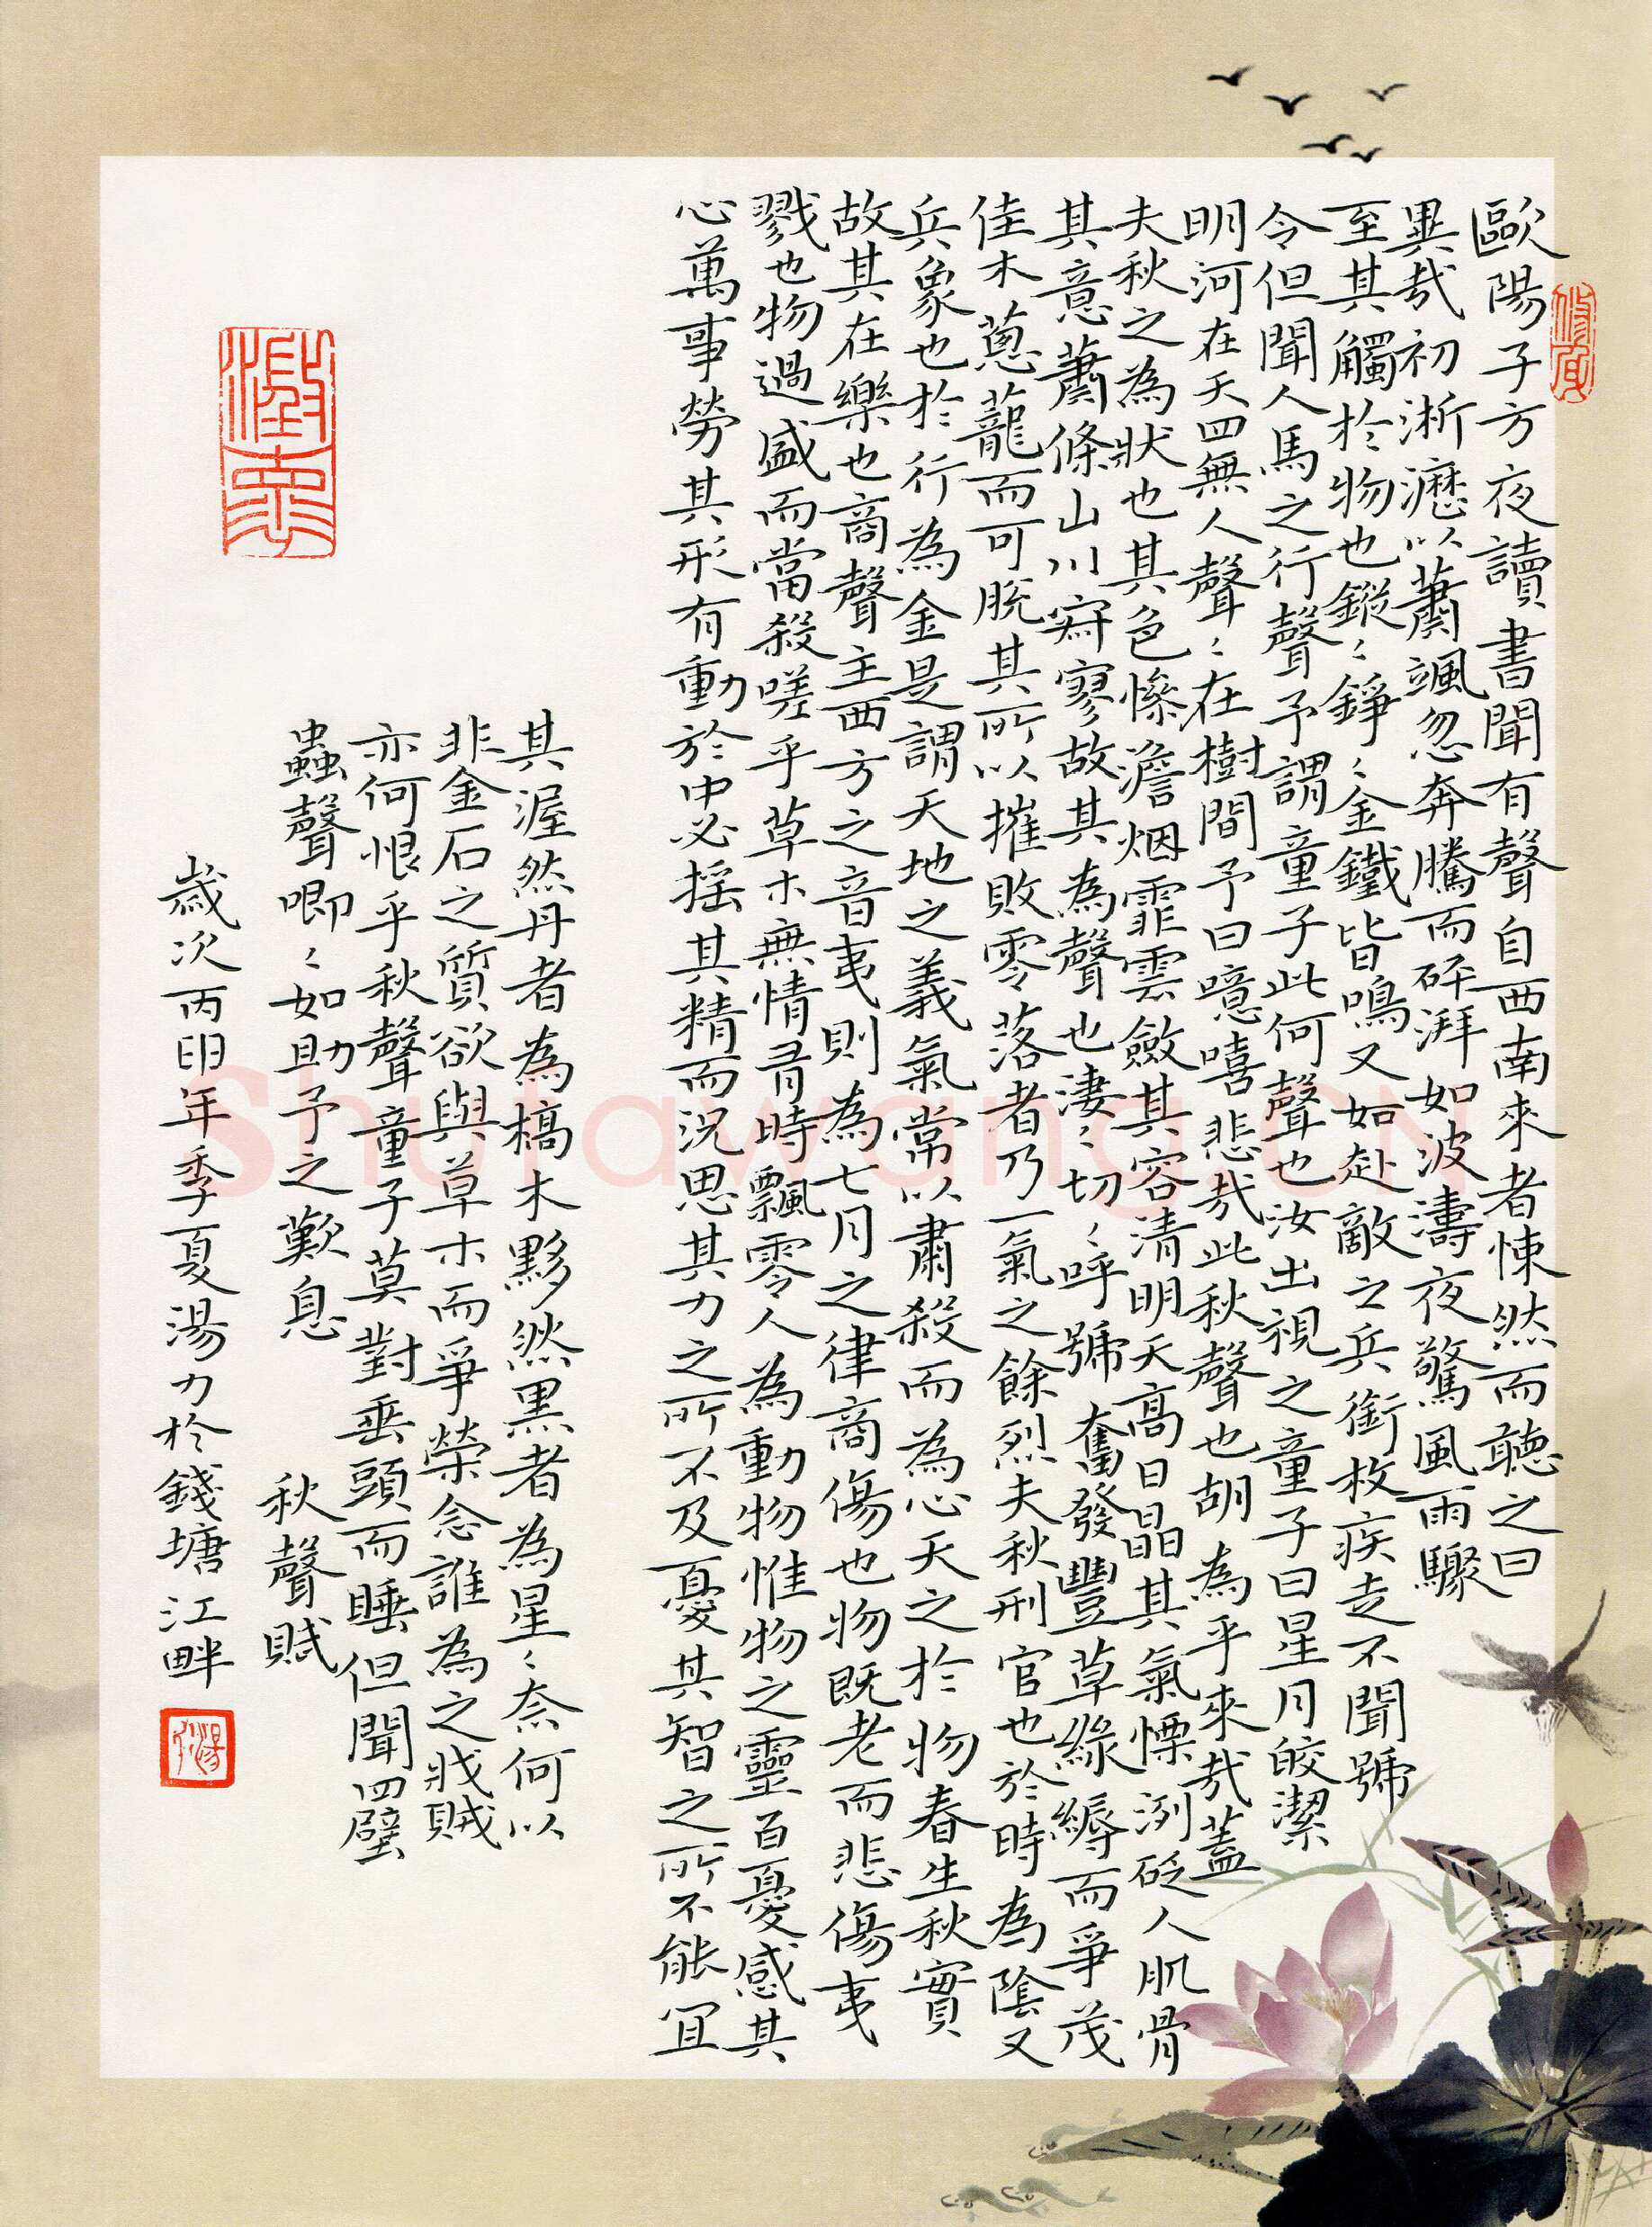 歐陽子方夜讀書聞有聲自西南來者悚然而聽之曰
異哉初淅瀝以蕭颯忽奔騰而砰湃如波濤夜驚風雨驟
至其觸於物也鏦〻錚〻金鐵皆鳴又如赴敵之兵銜枚疾走不聞號
令但聞人馬之行聲予謂童子此何聲也汝出視之童子曰星月皎潔
明河在天四無人聲〻在樹間予曰噫嘻悲哉此秋聲也胡為乎來哉蓋
夫秋之為狀也其色慘澹烟霏雲斂其容清明天高日晶其氣慄洌砭人肌骨
其意蕭條山川寂寥故其為聲也淒〻切〻呼號奮發豐草綠縟而爭茂
佳木蔥蘢而可脫其所以摧敗零落者乃一氣之餘烈夫秋刑官也於時為陰又
兵象也於行為金是謂天地之義氣常以肅殺而為心天之於物春生秋實
故其在樂也商聲主西方之音夷則為七月之律商傷也物既老而悲傷夷
戮也物過盛而當殺嗟乎草木無情有時飄零人為動物惟物之靈百憂感其
心萬事勞其形有動於中必搖其精而況思其力之所不及憂其智之所不能宜
其渥然丹者為槁木黟然黑者為星〻奈何以
非金石之質欲與草木而爭榮念誰為之戕賊
亦何恨乎秋聲童子莫對垂頭而睡但聞四壁
蟲聲唧〻如助予之歎息 秋聲賦
歲次丙申年季夏湯力於錢塘江畔
Shufawang CN